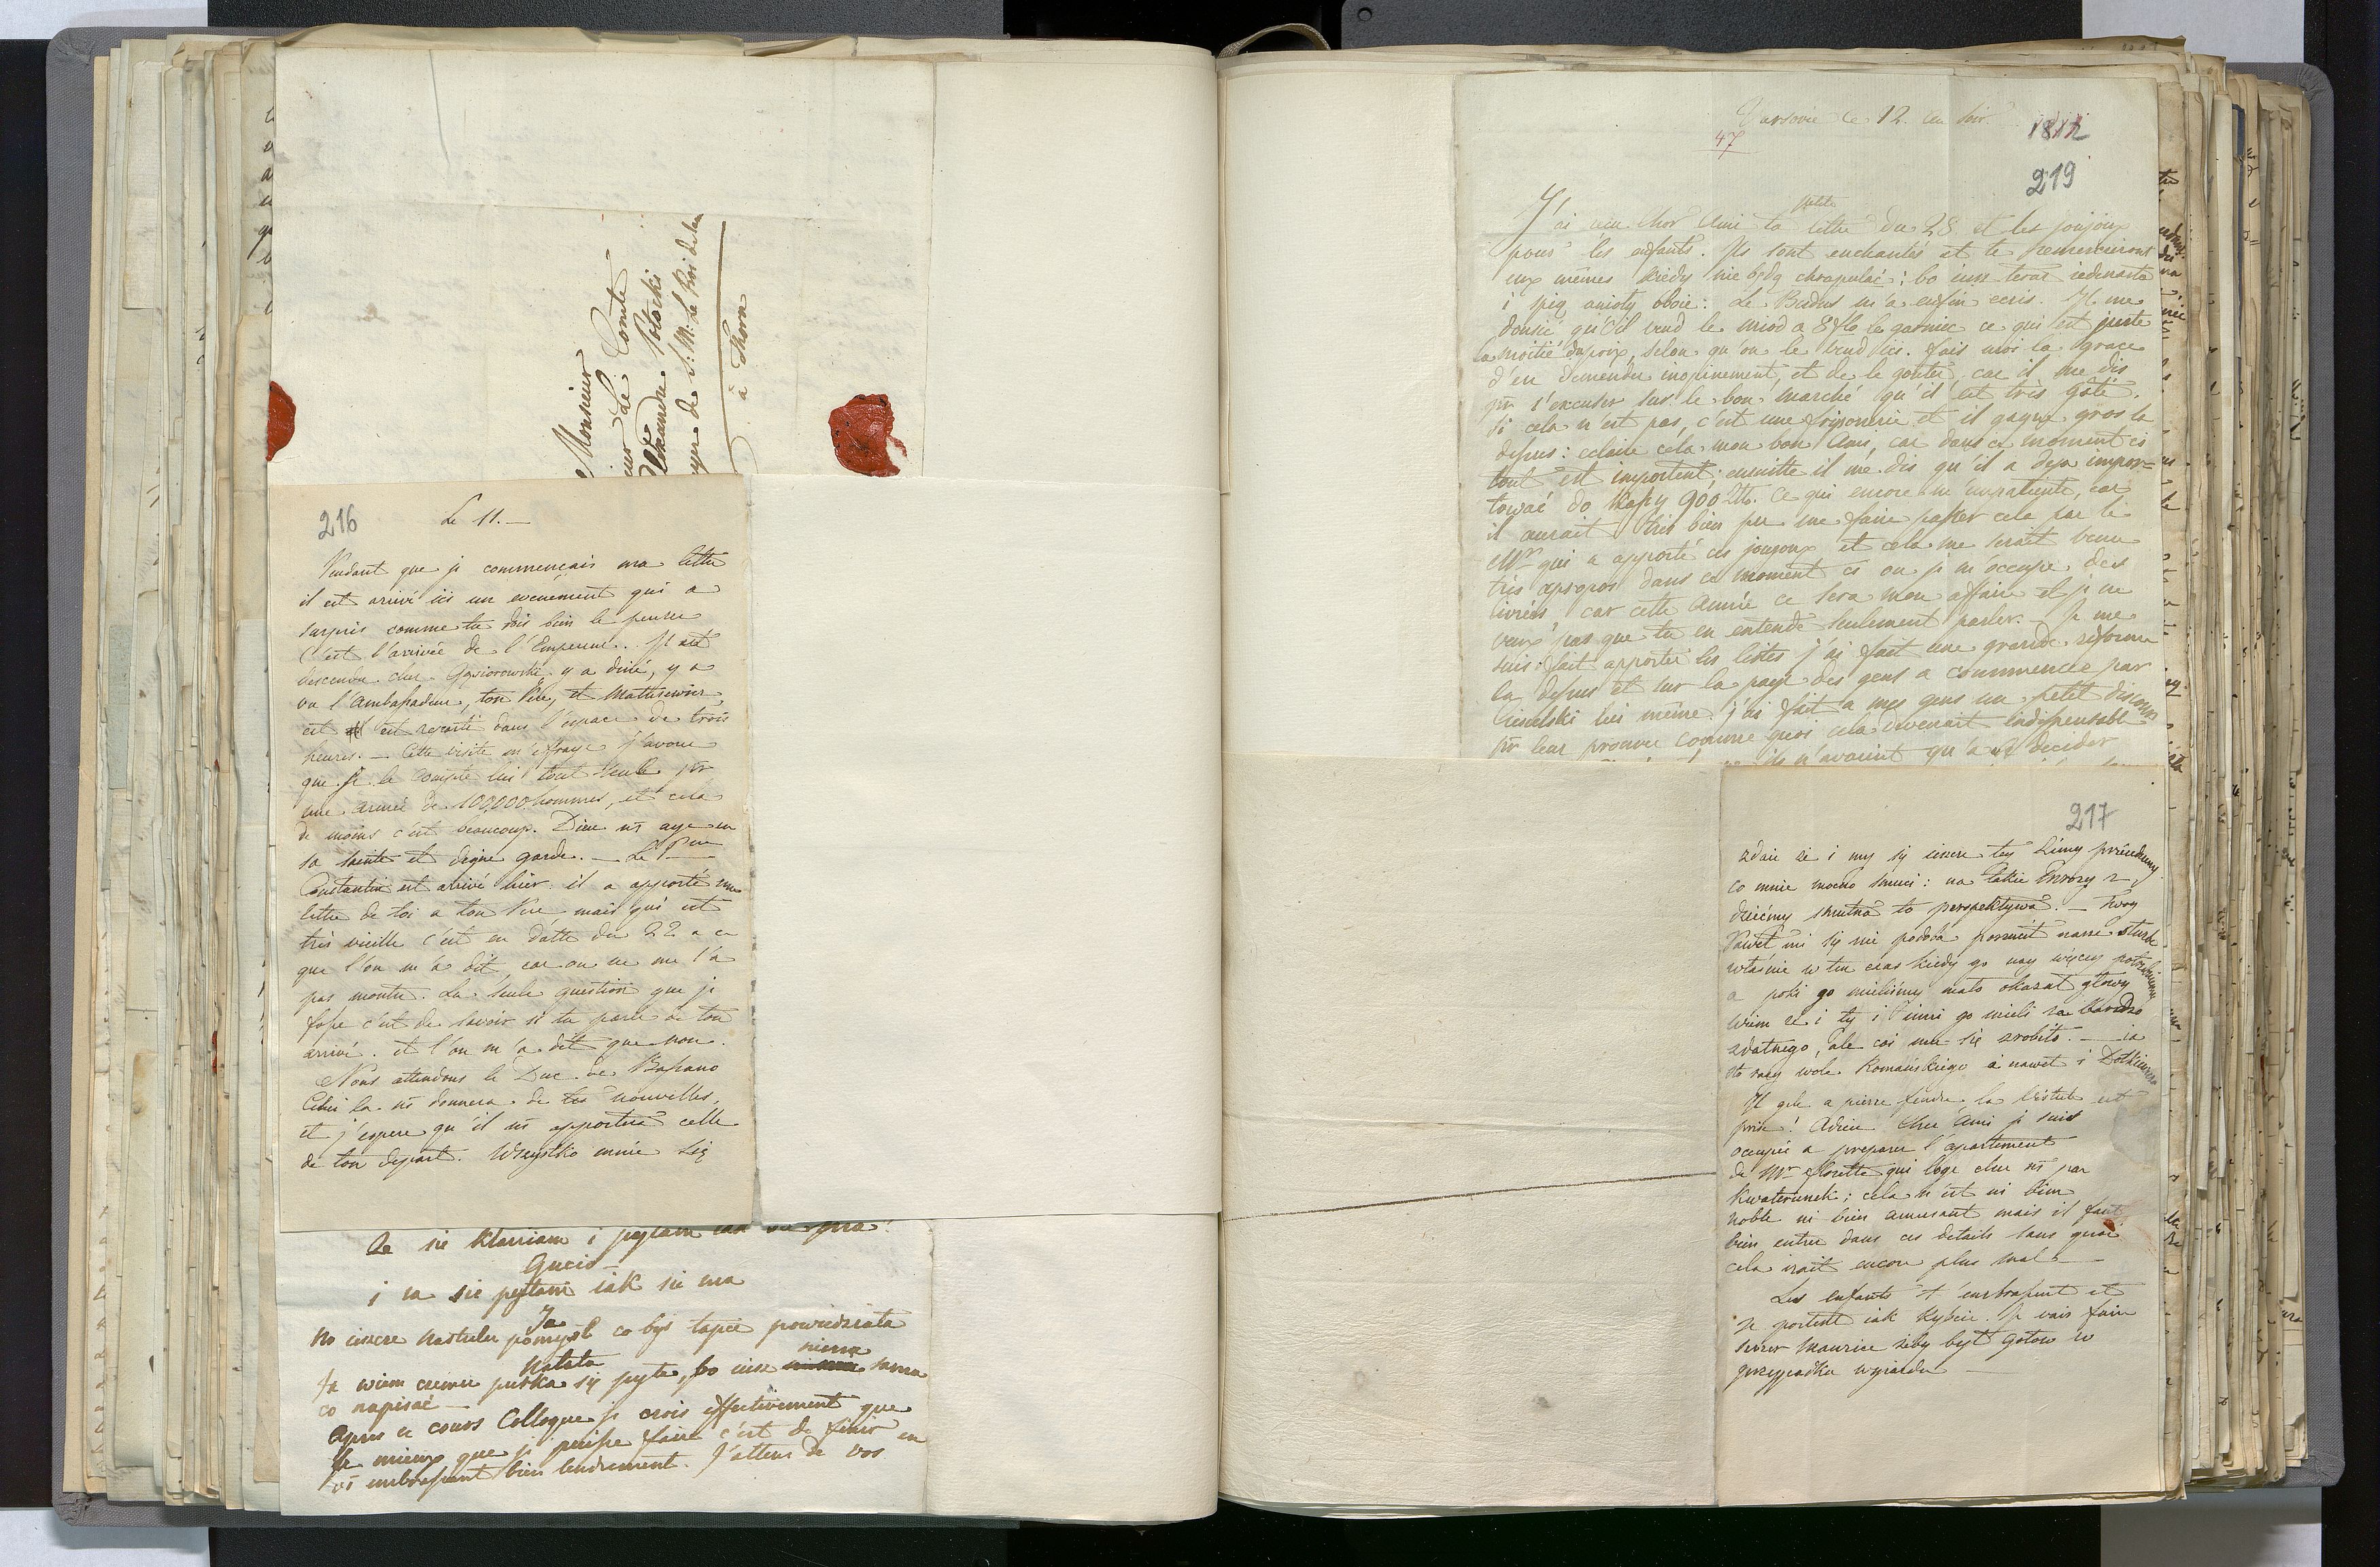 Monsieur
Le Comte
Alexandre Potocki
de S: M: Le Roi de
à Thorn
216
Le 11. —
Pendant que je commençais ma lettre
il est arrivé ici un evenement qui a
surpris comme tu dois bien le penser
C'est l'arrivée de l'Empereur. Il est
descendu chez Gąsiorowski, y a diné, y a
vu l'Ambassadeur, ton Père, et Mathusewicz
est est reparti dans l'espace de trois
heures. — Cette visite m'effraye j'avoue
que je le compte lui tout seul pr
une armée de 100,000 hommes, et cela
de moins c'est beaucoup. Dieu ns aye en
sa sainte et digne garde. — Le Pce
Constantin est arrivé hier. il a apporté une
lettre de toi a ton Père mais qui est
très vieille c'est en datte du 22 a ce
que l'on m'a dit, car on ne me l'a
pas montré. La seule question que je
fasse c'est de savoir si tu parle de ton
arrivé. et l'on m'a dit que non.
Nous attendons le Duc de Bassano
Celui la ns donnera de tes nouvelles,
et j'espere qu'il ns apportera celle
de ton depart. Wszystko mnie się
Ja się kłaniam i pytam iak się ma
Gucio —
i ia się pytam iak się ma
Ja
No ieszcze Natulu pomyśl co byś tapcie powiedziała
Natata
Ja wiem czemu putka się pyta, bo iusz niema sama
co napisać —
Apres ce cours Colloque je crois effectivement que
le mieux que je puisse faire c'est de finir en
vs embrassant bien tendrement. J'attens de vos
Varsovie ce 12. au soir.
47
1812
219
petite
J'ai reçu Cher Ami ta lettre du 28 et les joujoux
pour les enfants. Ils sont enchantés et te remercieront
eux mêmes kiedy nie będą chrapulać: bo iusz teraz iedenasta
i śpią anioły oboie: Le Badus m'a enfin ecris. Il me
donsié qu'il vend le miod a 8 f le garniec ce qui est juste
la moitié du prix, selon qu'on le vend ici. fais moi la grace
d'en demender inopinement, et de le gouter car il me dis
pr s'excuser sur le bon marché qu'il est très gâté.
Si cela n'est pas, c'est une friponerie et il gagne gros la
dessus: eclaire cela mon bon Ami, car dans ce moment ci
tout est important; ensuitte il me dis qu'il a deja impor=
tować do Kapy 900 #. Ce qui encore m'impatiente, car
il aurait très bien pu me faire passer cela par le
Mr qui a apporté ces joujoux, et cela me serait venu
très apropos dans ce moment ci ou je m'occupe des
livrées, car cette Année ce sera mon affaire et je ne
veux pas que tu en entende seulement parler. — Je me
suis fait apporter les listes j'ai fait une grande reforme
la dessus et sur la paye des gens a commencer par
Ciesielski lui même. j'ai fait a mes gens un petit discours
pr leur prouver comme quoi cela devenait indispensable
ils n'avaient qu'a se decider
217
zdaie że i my się ieszcze tey Zimy przeiedziemy
co mnie mocno smuci: na takie mrozy z
dziećmi smutna to perspektywa. — Twoy
Paweł mi się nie podoba porzucił nasze służbe
właśnie w ten czas kiedy go nay więcey potrzebuiemy
a poki go mieliśmy mało okazał głowy
wiem że i ty i inni go mieli za bardzo
zdatnego, ale coś mu się zrobiło. — ia
sto razy wole Romańskiego a nawet i
Il gele a pierre fendre la Vistule est
prise! Adieu Cher Ami je suis
occupée a preparer l'apartement
de Mr Florette qui loge chez ns par
Kwaterunek; cela n'est ni bien
noble ni bien amusant mais il faut
bien entrer dans ces details sans quoi
cela irait encore plus mal. —
Les enfants t'embrassent et
se portent iak Rybcie. Je vais faire
sevrer Maurice żeby był gotow w
przypadku wyiazdu —